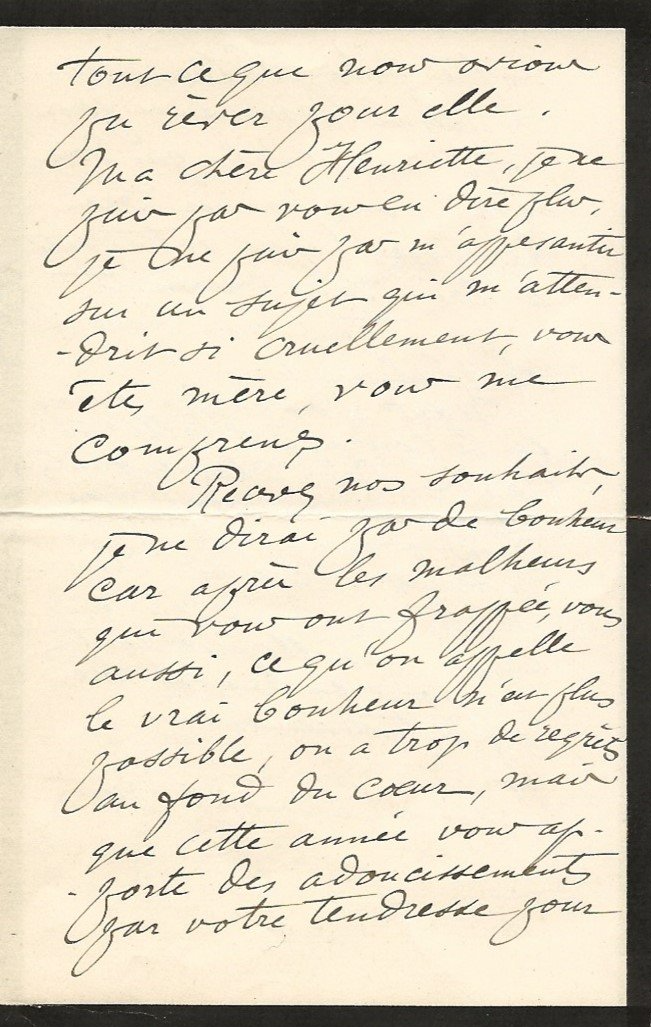 tout ce que nous avions
pu rêver pour elle.
Ma chère Henriette, je ne
puis pas vous en dire plus,
je ne puis pas m'appesantir
sur un sujet qui m'atten-
-drit si cruellement, vous
êtes mère, vous me
comprenez.
Recevez nos souhaits,
je ne dirai pas de bonheur
car après les malheurs
qui vous ont frappée, vous
aussi, ce qu'on appelle
le vrai bonheur n'est plus
possible, on a trop de regrets
au fond du cœur, mais
que cette année vous ap-
-porte des adoucissements
par votre tendresse pour